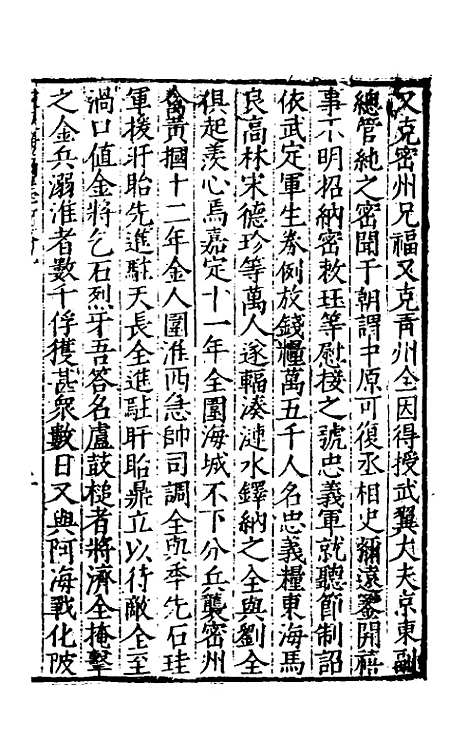 又克密州兄福又克青州全因得授武翼大夫京東副
總管純之密聞于朝謂中原可復丞相史彌遠鑒開禧
事不明招納密敕珏等慰接之號忠義軍就聽節制詔
依武定軍生券例放錢糧萬五千人名忠義糧東海馬
良高林宋德珍等萬人遂輻湊漣水鐸納之全與劉全
俱起羨心焉嘉定十一年全圍海城不下分兵襲密州
禽黃摑十二年金人圍淮西急帥司調全與季先石珪
軍援盱眙先進駐天長全進駐盱眙鼎立以待敵全至
渦口值金將乞石烈牙吾答名盧鼓槌者將濟全掩擊
之金兵溺淮者數千俘獲甚衆數日又與阿海戰化陂